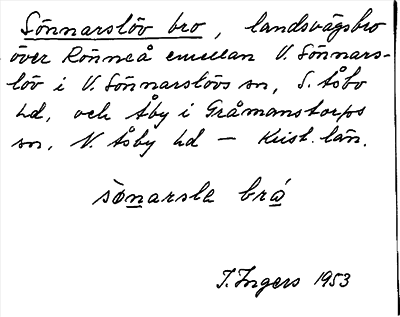 Sönnarslöv bro, landsvägsbro
över Rönneå emellan V. Sönnars-
löv i V. Sönnarslövs sn, S. Åsbo
hd, och Åby i Gråmanstorps
sn, N. Åsby hd — Krist. län.
sònarsle brá
I. Ingers 1953